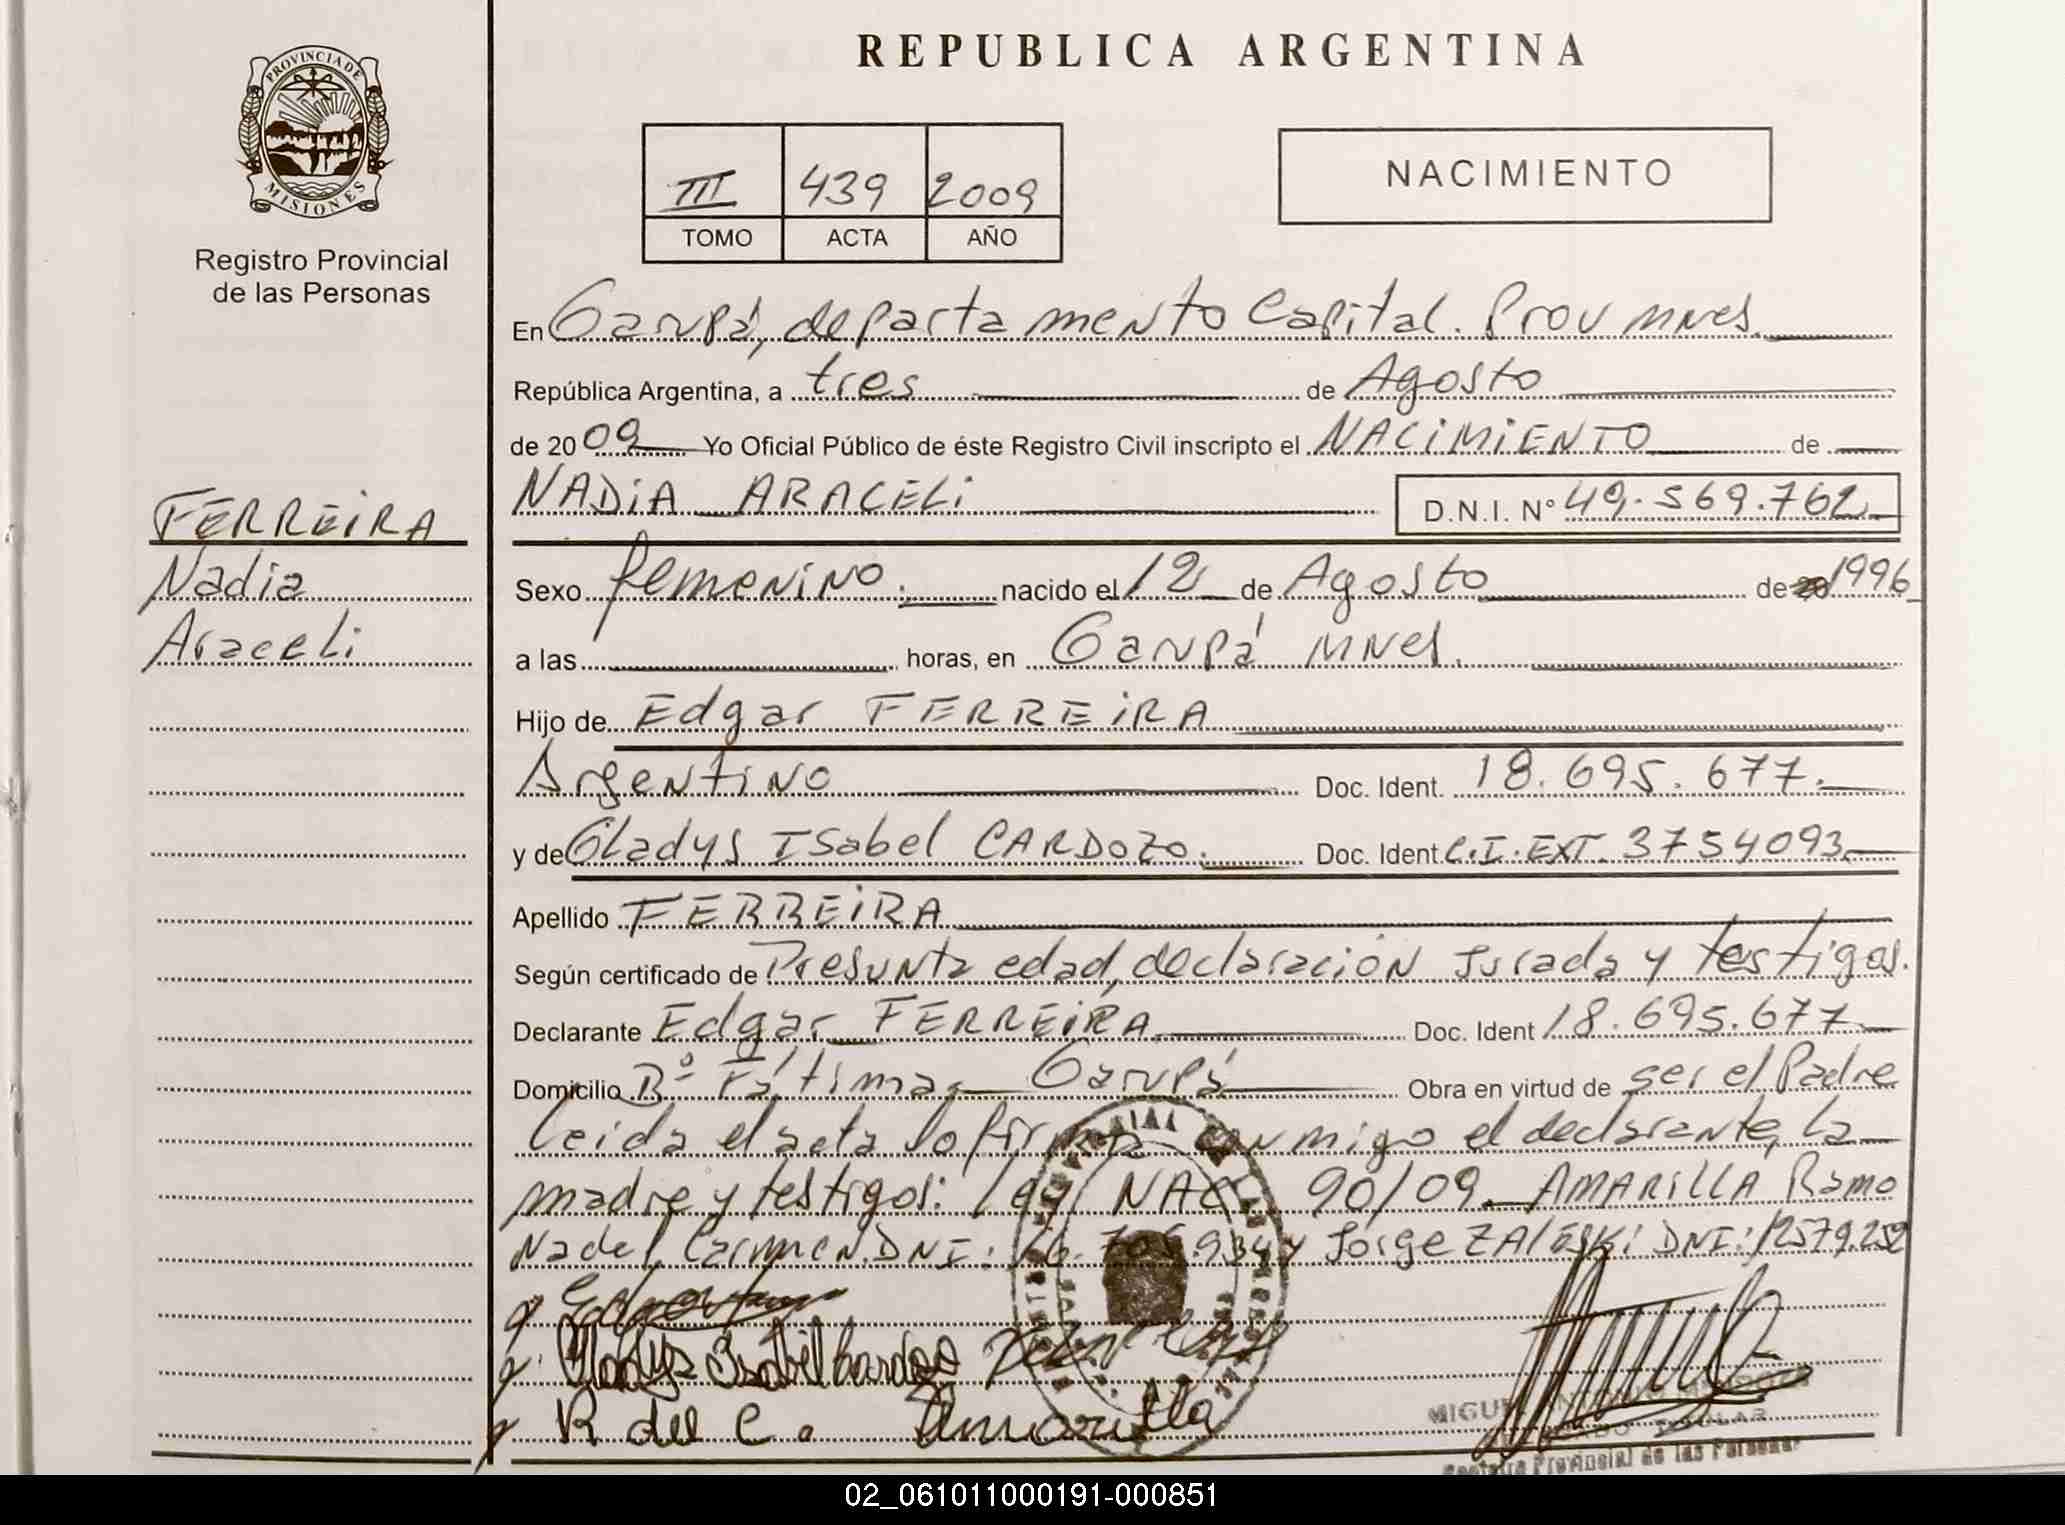 PROVINCIA DE
MISIONES
Registro Provincial
de las Personas
FERREIRA
Nadia
Araceli
REPUBLICA ARGENTINA
III 439 2009
TOMO ACTA AÑO
NACIMIENTO
En Garupá, departamento Capital. Prov Mnes.
República Argentina, a tres de Agosto
de 20 09 Yo Oficial Público de éste Registro Civil inscripto el NACIMIENTO de
NADIA ARACELI D.N.I. Nº 49.569.762
Sexo femenino. nacido el 12 de Agosto de 1996
a las horas, en Garupá Mnes.
Hijo de Edgar FERREIRA
Argentino Doc. Ident. 18.695.677.
y de Gladys Isabel CARDOZO. Doc. Ident. C.I. EXT. 3754093
Apellido FERREIRA
Según certificado de Presunta edad, declaración Jurada y testigos.
Declarante Edgar FERREIRA Doc. Ident 18.695.677
Domicilio Bº Fátima Garupá Obra en virtud de ser el Padre
Leida el acta lo firma conmigo el declarante, la
madre y testigos: Ley NAC 90/09. AMARILLA Ramo
Na del Carmen. DNI: y Jorge ZALESKI DNI: 12579.252
Gladys Isabel Cardozo
R del C. Amarilla
MIGUEL ANTONIO
TITULAR
Registro Provincial de las Personas
02_061011000191-000851